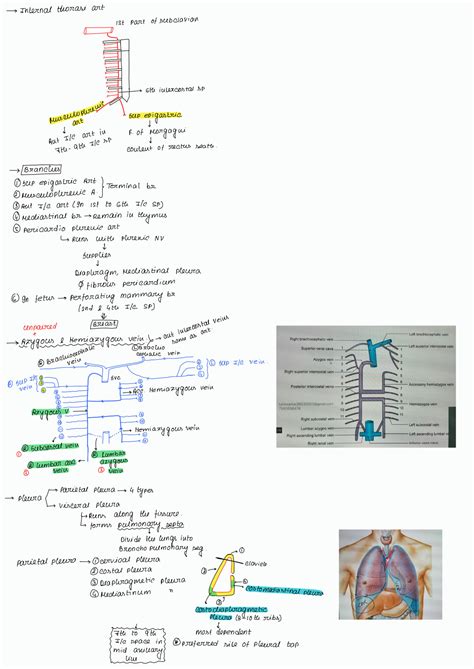 → Internal thoracic art
1st Part of subclavian
6th intercostal SP
Musculophrenic art
Sup epigastric
Ant I/C art in 7th-9th I/C SP
F. of Morgagni
Content of rectus sheath
→ Branches
① Sup epigastric Art
② Musculophrenic A
Terminal br
③ Ant I/C art (In 1st to 6th I/C SP)
④ Mediastinal br → Remain in thymus
⑤ Pericardio phrenic art
↳ Runs with phrenic NV
Supplies
Diaphragm, Mediastinal pleura
fibrous pericardium
⑥ In → Perforating mammary br
(2nd & 4th I/C SP)
Breast
Unpaired
→ Azygous & Hemiazygous vein
→ ant intercostal veins same as art
Brachiocephalic vein
Sup I/C vein
SVC
Acc Hemiazygous vein
Azygous V
Hemiazygous vein
Subcostal vein
Lumbar azygous vein
Right brachiocephalic vein
Superior vena cava
Azygos vein
Right superior intercostal vein
Posterior intercostal vein
Right subcostal vein
Lumbar azygos vein
Right ascending lumbar vein
Right renal vein
Left brachiocephalic vein
Left superior intercostal vein
Accessory hemiazygos vein
Hemiazygos vein
Left subcostal vein
Left ascending lumbar vein
Left renal vein
Inferior vena cava
→ Pleura
Parietal pleura → 4 types
visceral pleura
↳ Runs along the fissure
forms pulmonary septa
Divide the lungs into
Broncho pulmonary seg
Parietal pleura → ① Cervical pleura
② Costal pleura
③ Diaphragmatic pleura
④ Mediastinum "
①
②
③
④
clavicle
Costomediastinal pleura
Costodiaphragmatic pleura (8-10th ribs)
most dependent
preferred site of pleural tap
7th to 9th
I/C space in
mid axillary
line